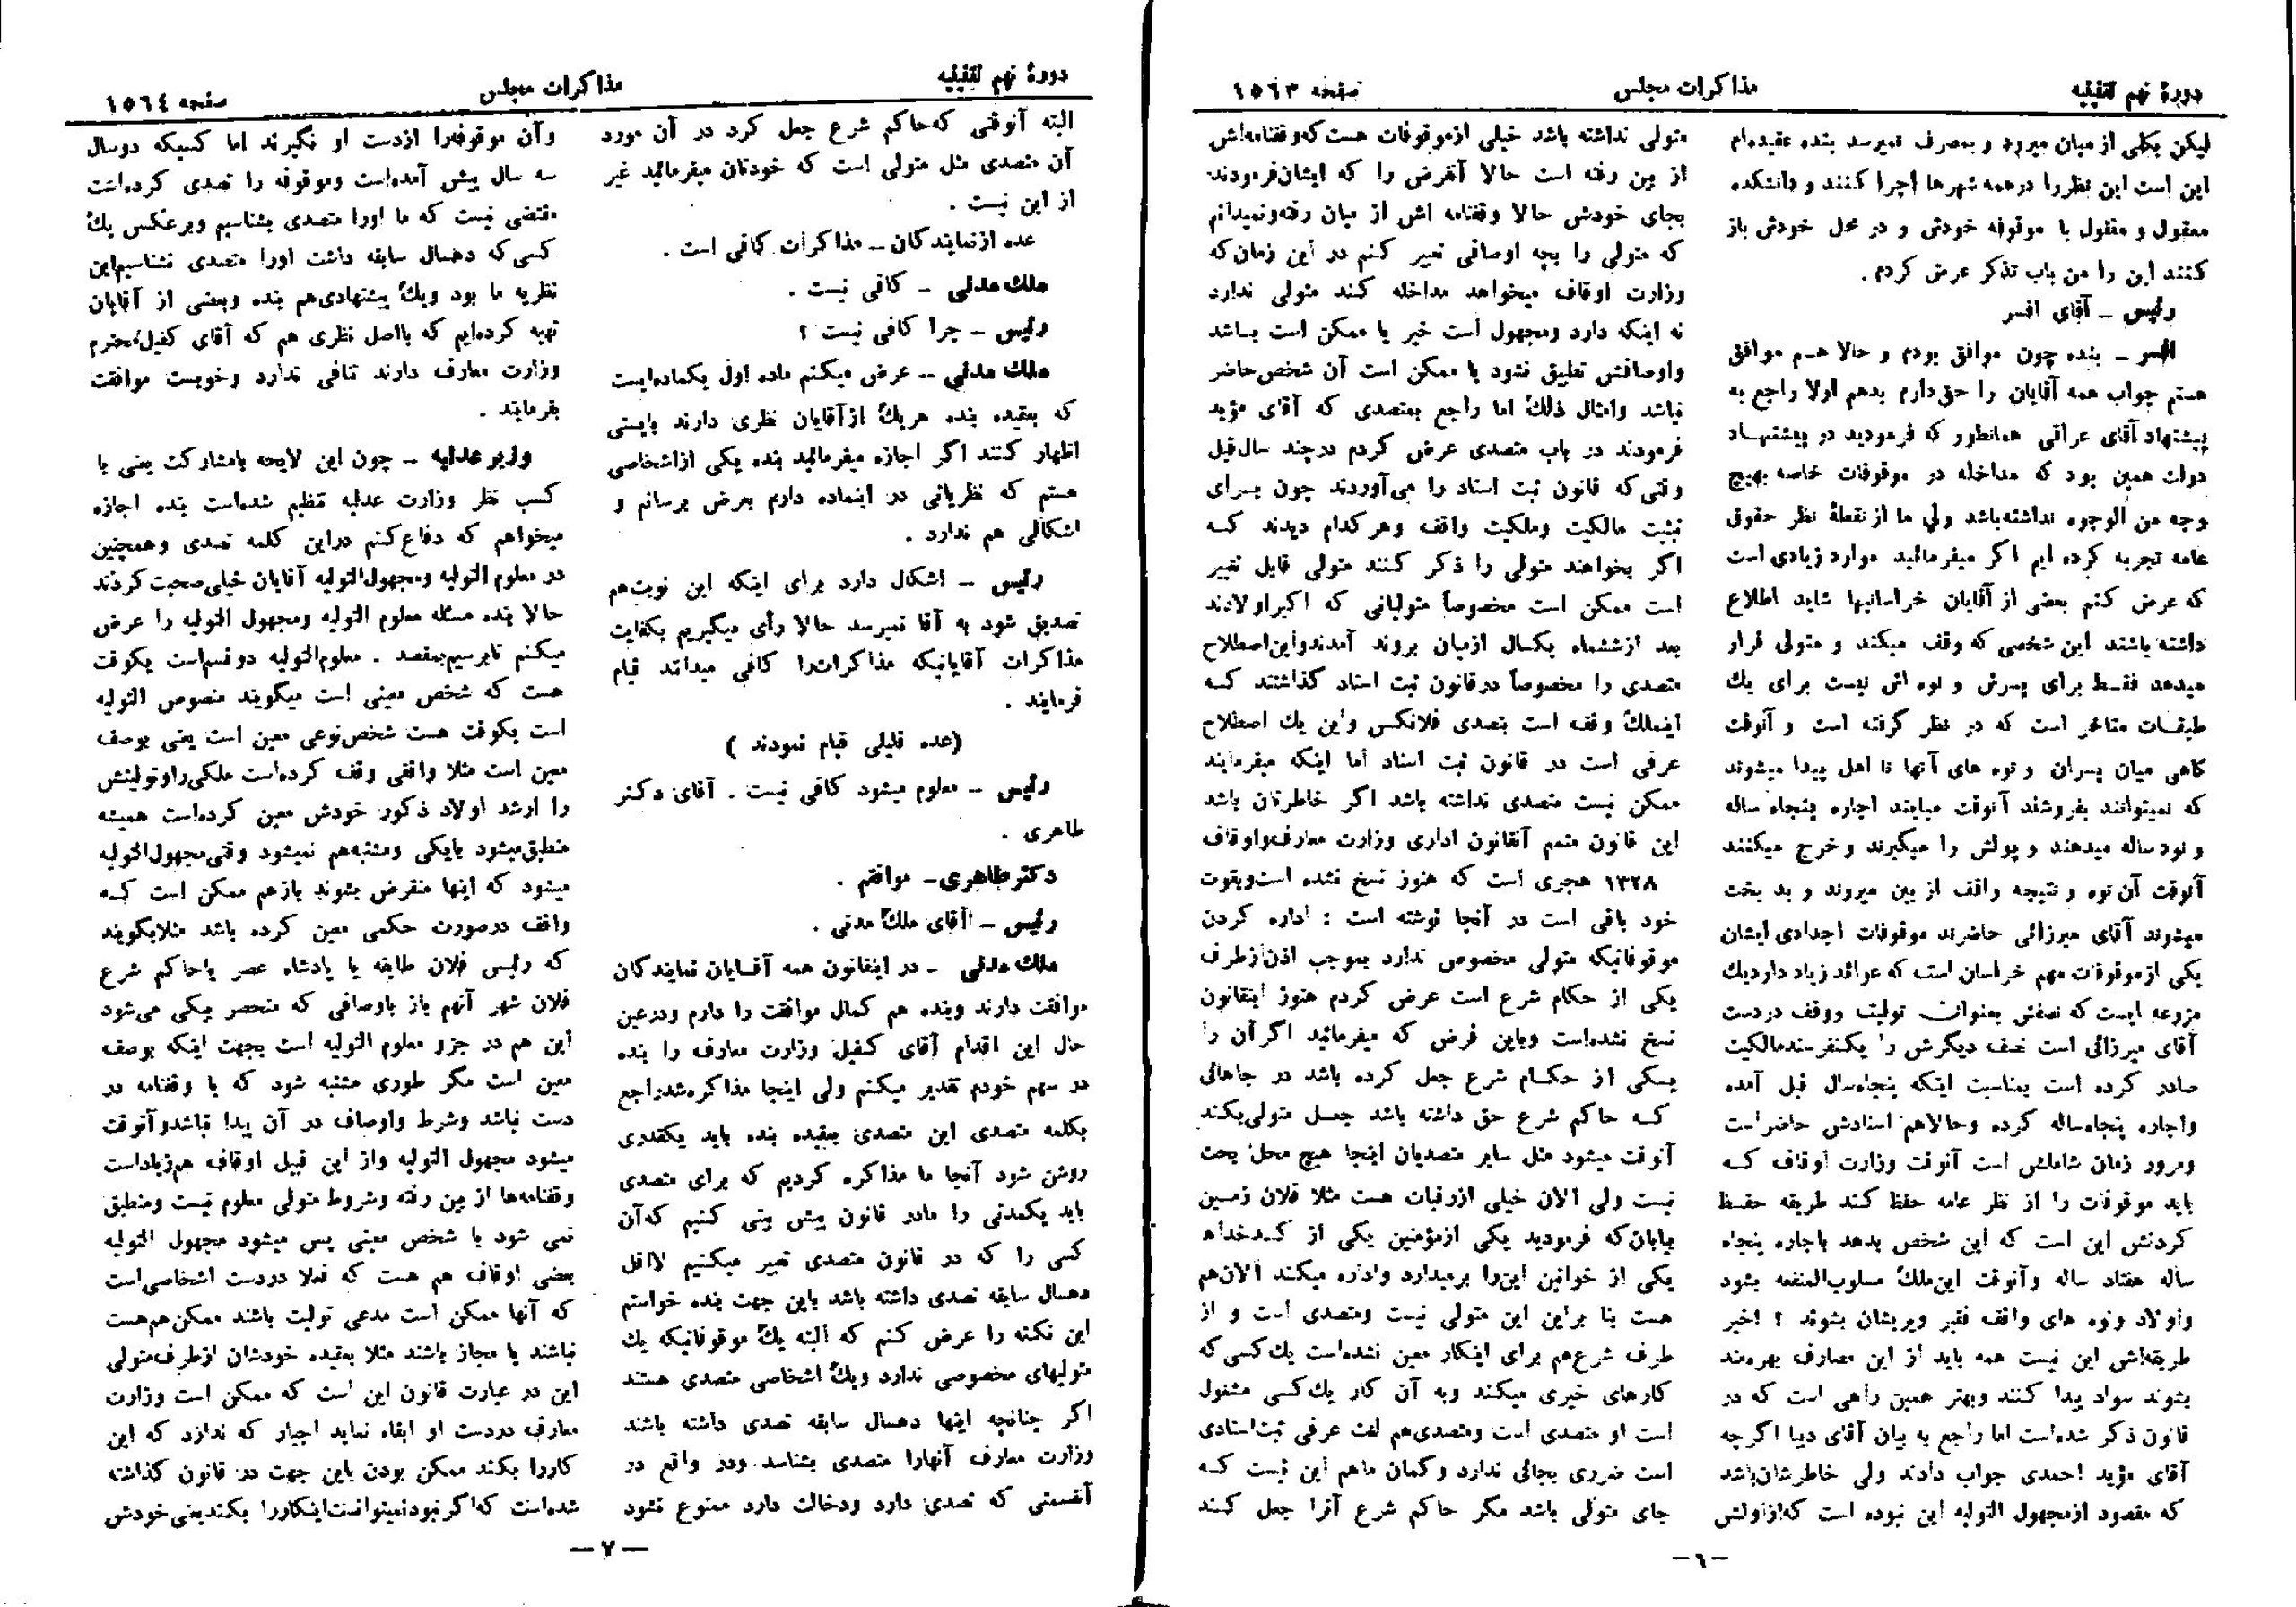 دورهٔ نهم تقنینیه
مذاکرات مجلس
صفحه ۱۵۶۳
لیکن بکلی از میان میرود و بمصرف نمیرسد بنده عقیده‌ام
این است این نظر را در همه شهرها اجرا کنند و دانشکده
معقول و منقول با موقوفه خودش و در محل خودش باز
کنند این را من باب تذکر عرض کردم .
رئیس ــ آقای افسر
افسر ــ بنده چون موافق بودم و حالا هم موافق
هستم جواب همه آقایان را حق دارم بدهم اولا راجع به
پیشنهاد آقای عراقی همانطور که فرمودید در پیشنهاد
دولت همین بود که مداخله در موقوفات خاصه بهیچ
وجه من الوجوه نداشته باشد ولی ما از نقطهٔ نظر حقوق
عامه تجربه کرده ایم اگر میفرمائید موارد زیادی است
که عرض کنم بعضی از آقایان خراسانیها شاید اطلاع
داشته باشند این شخصی که وقف میکند و متولی قرار
میدهد فقط برای پسرش و نوه اش نیست برای یك
طبقات متاخر است که در نظر گرفته است و آنوقت
گاهی میان پسران و نوه های آنها نا اهل پیدا میشوند
که نمیتوانند بفروشند آنوقت میایند اجاره پنجاه ساله
و نود ساله میدهند و پولش را میگیرند و خرج میکنند
آنوقت آن نوه و نتیجه واقف از بین میروند و بد بخت
میشوند آقای میرزائی حاضرند موقوفات اجدادی ایشان
یکی از موقوفات مهم خراسان است که عوائد زیاد دارد یك
مزرعه ایست که نصفش بعنوان تولیت ووقف در دست
آقای میرزائی است نصف دیگرش را یکنفر سند مالکیت
صادر کرده است بمناسبت اینکه پنجاه سال قبل آمده
واجاره پنجاه ساله کرده وحالاهم اسنادش حاضر است
ومرور زمان شاملش است آنوقت وزارت اوقاف که
باید موقوفات را از نظر عامه حفظ کند طریقه حفظ
کردنش این است که این شخص بدهد باجاره پنجاه
ساله هفتاد ساله وآنوقت این ملك مسلوب المنفعه بشود
واولاد ونوه های واقف فقیر وپریشان بشوند ؟ اخیر
طریقه‌اش این نیست همه باید از این معارف بهره‌مند
بشوند سواد پیدا کنند وبهتر همین راهی است که در
قانون ذکر شده‌است اما راجع به بیان آقای دیبا اگرچه
آقای مؤید احمدی جواب دادند ولی خاطرشان باشد
که مقصود از مجهول التولیه این نبوده است که از اولش
متولی نداشته باشد خیلی از موقوفات هست که وقفنامه‌اش
از بین رفته است حالا آنفرض را که ایشان فرمودند
بجای خودش حالا وقفنامه اش از میان رفته و نمیدانم
که متولی را بچه اوصافی تعبیر کنم در این زمان که
وزارت اوقاف میخواهد مداخله کند متولی ندارد
نه اینکه دارد ومجهول است خیر یا ممکن است باشد
واوصافش تطبیق نشود یا ممکن است آن شخص حاضر
نباشد وامثال ذلك اما راجع بمتصدی که آقای مؤید
فرمودند در باب متصدی عرض کردم در چند سال قبل
وقتی که قانون ثبت اسناد را می‌آوردند چون برای
تثبیت مالکیت وملکیت واقف وهر کدام دیدند که
اگر بخواهند متولی را ذکر کنند متولی قابل تغییر
است ممکن است مخصوصاً متولیانی که اکبر اولادند
بعد از ششماه یکسال از میان بروند آمدند و این اصطلاح
متصدی را مخصوصاً در قانون ثبت اسناد گذاشتند که
اینملك وقف است بتصدی فلانکس واین یك اصطلاح
عرفی است در قانون ثبت اسناد اما اینکه میفرمایند
ممکن نیست متصدی نداشته باشد اگر خاطرتان باشد
این قانون متمم آنقانون اداری وزارت معارف و اوقاف
۱۳۲۸ هجری است که هنوز نسخ نشده است وبقوت
خود باقی است در آنجا نوشته است : اداره کردن
موقوفاتیکه متولی مخصوص ندارد بموجب اذن از طرف
یکی از حکام شرع است عرض کردم هنوز اینقانون
نسخ نشده‌است وباین فرض که میفرمائید اگر آن را
یکی از حکام شرع جعل کرده باشد در جاهائی
که حاکم شرع حق داشته باشد جعل متولی بکند
آنوقت میشود مثل سایر متصدیان اینجا هیچ محل بحث
نیست ولی الان خیلی از رقبات هست مثلا فلان زمین
بیابان که فرمودید یکی از مؤمنین یکی از کدخداها
یکی از خوانین این را برمیدارد واداره میکند الان هم
هست بنا براین این متولی نیست ومتصدی است و از
طرف شرع هم برای اینکار معین نشده‌است یك کسی که
کارهای خیری میکند وبه آن کار یك کسی مشغول
است او متصدی است ومتصدی هم لغت عرفی ثبت اسنادی
است ضرری بجائی ندارد و گمان ما هم این نیست که
جای متولی باشد مگر حاکم شرع آنرا جعل کند
ــ ۶ ــ
دورهٔ نهم تقنینیه
مذاکرات مجلس
صفحه ۱۵۶۴
البته آنوقتی که حاکم شرع جعل کرد در آن مورد
آن متصدی مثل متولی است که خودتان میفرمائید غیر
از این نیست .
عده از نمایندگان ــ مذاکرات کافی است .
ملك مدنی ــ کافی نیست .
رئیس ــ چرا کافی نیست ؟
ملك مدنی ــ عرض میکنم ماده اول یکماده‌ایست
که بعقیده بنده هریك از آقایان نظری دارند بایستی
اظهار کنند اگر اجازه میفرمائید بنده یکی از اشخاصی
هستم که نظریاتی در اینماده دارم بعرض برسانم و
اشکالی هم ندارد .
رئیس ــ اشکال دارد برای اینکه این نوبت هم
تصدیق شود به آقا نمیرسد حالا رأی میگیریم بکفایت
مذاکرات آقایانیکه مذاکرات را کافی میدانند قیام
فرمایند .
(عده قلیلی قیام نمودند )
رئیس ــ معلوم میشود کافی نیست . آقای دکتر
طاهری .
دکتر طاهری ــ موافقم .
رئیس ــ آقای ملك مدنی .
ملك مدنی ــ در اینقانون همه آقایان نمایندگان
موافقت دارند وبنده هم کمال موافقت را دارم ودر عین
حال این اقدام آقای کفیل وزارت معارف را بنده
در سهم خودم تقدیر میکنم ولی اینجا مذاکره شد راجع
بکلمه متصدی این متصدی بعقیده بنده باید یکقدری
روشن شود آنجا ما مذاکره کردیم که برای متصدی
باید یکمدتی را ما در قانون پیش بینی کنیم که آن
کسی را که در قانون متصدی تعبیر میکنیم لااقل
دهسال سابقه تصدی داشته باشد باین جهت بنده خواستم
این نکته را عرض کنم که البته یك موقوفاتیکه یك
متولیهای مخصوصی ندارد ویك اشخاصی متصدی هستند
اگر چنانچه اینها دهسال سابقه تصدی داشته باشند
وزارت معارف آنهارا متصدی بشناسد ودر واقع در
آنقسمتی که تصدی دارد ودخالت دارد ممنوع نشود
وآن موقوفه‌را ازدست او نگیرند اما کسیکه دوسال
سه سال پیش آمده‌است وموقوفه را تصدی کرده‌است
مقتضی نیست که ما اورا متصدی بشناسیم وبرعکس یك
کسی که دهسال سابقه داشت اورا متصدی نشناسیم این
نظریه ما بود ویك پیشنهادی هم بنده وبعضی از آقایان
تهیه کرده‌ایم که بااصل نظری هم که آقای کفیل محترم
وزارت معارف دارند تنافی ندارد وخوبست موافقت
بفرمایند .
وزیر عدلیه ــ چون این لایحه بامشارکت یعنی با
کسب نظر وزارت عدلیه تنظیم شده‌است بنده اجازه
میخواهم که دفاع کنم دراین کلمه تصدی وهمچنین
در معلوم التولیه ومجهول التولیه آقایان خیلی صحبت کردند
حالا بنده مسئله معلوم التولیه ومجهول التولیه را عرض
میکنم تابرسیم بمقصد . معلوم التولیه دو قسم است یکوقت
هست که شخص معینی است میگویند منصوص التولیه
است یکوقت هست شخص نوعی معین است یعنی بوصف
معین است مثلا واقفی وقف کرده‌است ملکی را وتولیتش
را ارشد اولاد ذکور خودش معین کرده‌است همیشه
منطبق میشود بایکی ومشتبه هم نمیشود وقتی مجهول التولیه
میشود که اینها منقرض بشوند بازهم ممکن است که
واقف درصورت حکمی معین کرده باشد مثلا بگویند
که رئیس فلان طایفه یا پادشاه عصر یا حاکم شرع
فلان شهر آنهم باز باوصافی که منحصر بیکی می‌شود
این هم در جزو معلوم التولیه است بجهت اینکه بوصف
معین است مگر طوری مشتبه شود که یا وقفنامه در
دست نباشد وشرط واوصاف در آن پیدا نباشد و آنوقت
میشود مجهول التولیه واز این قبیل اوقاف هم زیاد است
وقفنامه‌ها از بین رفته وشروط متولی معلوم نیست ومنطبق
نمی شود با شخص معینی پس میشود مجهول التولیه
بعضی اوقاف هم هست که فعلا دردست اشخاصی است
که آنها ممکن است مدعی تولیت باشند ممکن هم هست
نباشند یا مجاز باشند مثلا بعقیده خودشان از طرف متولی
این در عبارت قانون این است که ممکن است وزارت
معارف دردست او ابقاء نماید اجبار که ندارد که این
کاررا بکند ممکن بودن باین جهت در قانون گذاشته
شده‌است که اگر نبود نمیتوانست اینکار را بکند یعنی خودش
ــ ۷ ــ